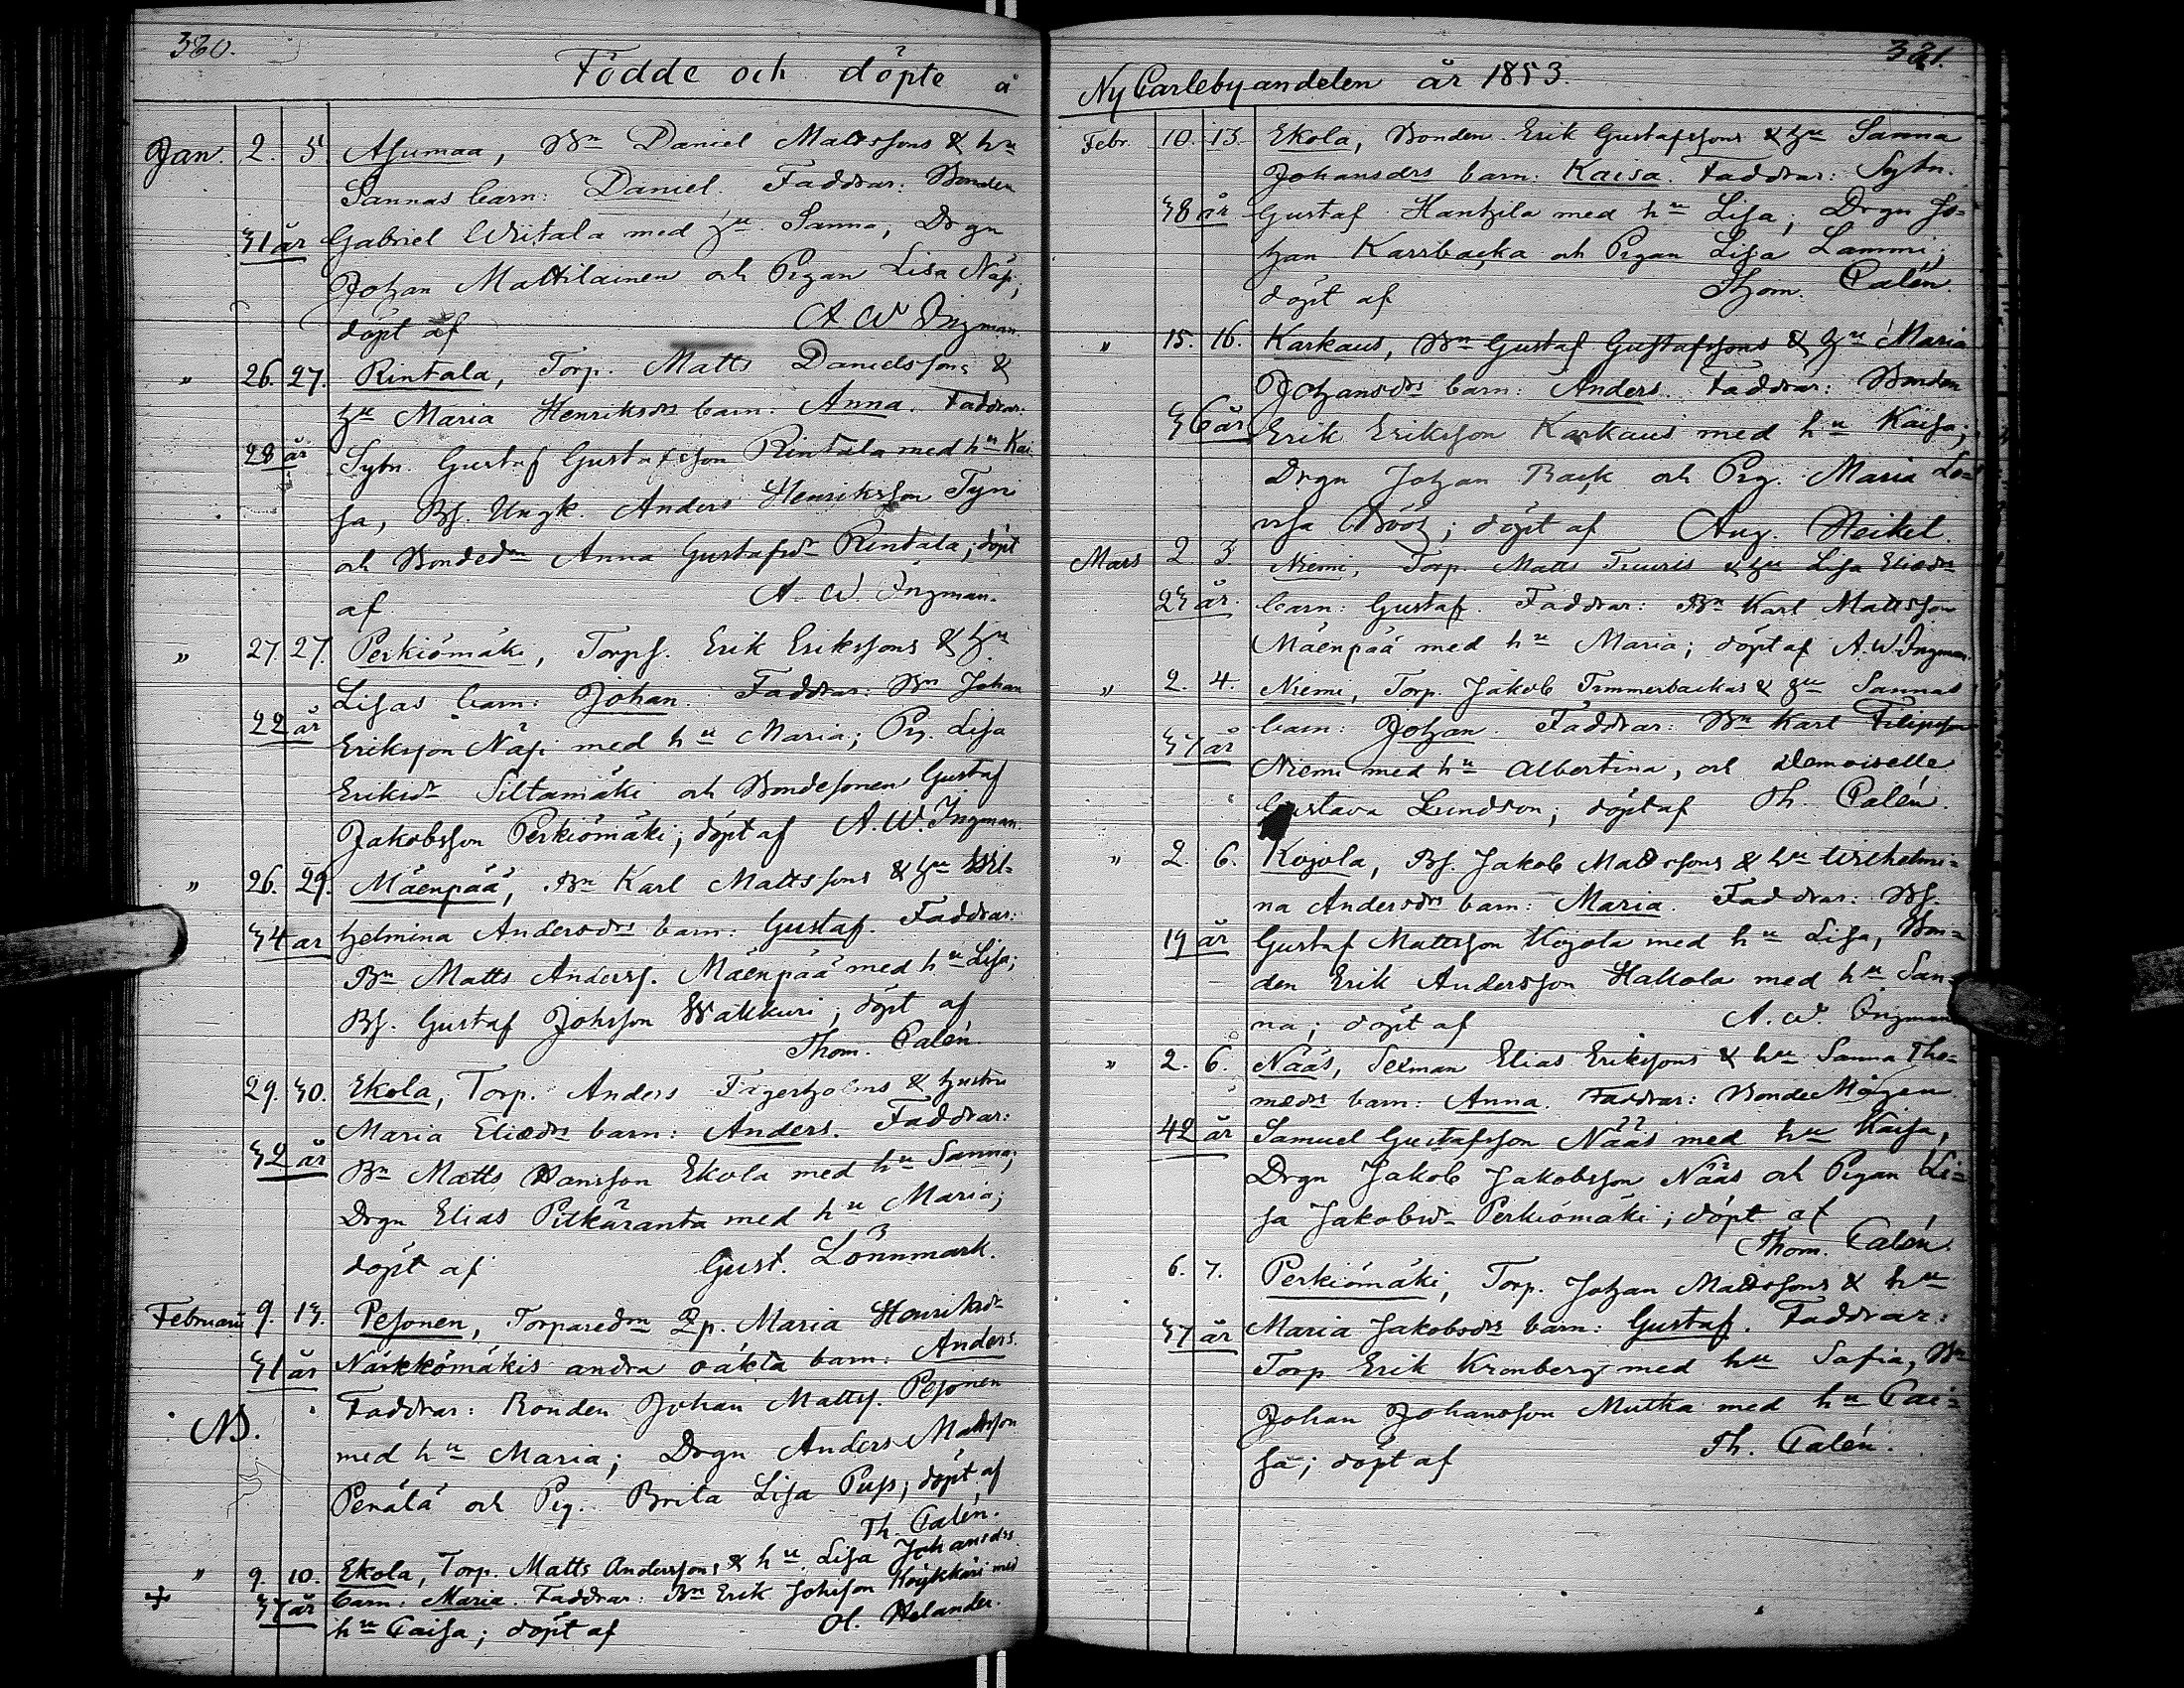 320.
Födde och döpte å
Jan. 2. 5. Asumaa, Bn Daniel Mattssons & hu
Sannas barn: Daniel. Faddrar: Bonden
31 år Gabriel Writala med hu Sanna, Drgn
Johan Mattilainen och Pigan Lisa Näsi;
döpt af A. W. Ingman.
" 26. 27. Rintala, Torp. Matts Danielssons &
hu Maria Henriksdrs barn: Anna. Faddrar:
28 år Sytn. Gustaf Gustafsson Rintala med hu Kai
sa, Bs. Ungk. Anders Henriksson Tyni
och Bondedn Anna Gustafsdr Rintala; döpt
af A. W. Ingman.
" 27. 27. Perkiömäki, Torps. Erik Erikssons & hu
Lisas barn: Johan. Faddrar: Bn Johan
22 år Eriksson Näsi med hu Maria; Pig. Lisa
Eriksdr Siltamäki och Bondesonen Gustaf
Jakobsson Perkiömäki; döpt af A. W. Ingman.
" 26. 29. Mäenpää, Bn Karl Mattssons & hu Wil-
34 år helmina Andersdrs barn: Gustaf. Faddrar:
Bn Matts Anderss. Mäenpää med hu Lisa;
Bs. Gustaf Johsson Wälikuri; döpt af
Thom. Calén.
29. 30. Ekola, Torp. Anders Fagerholms & hustru
Maria Eliædrs barn: Anders. Faddrar:
32 år Bn Matts Hansson Ekola med hu Sanna;
Drgn Elias Pitkäranta med hu Maria;
döpt af Gust. Lönnmark.
Februarii 9. 13. Pesonen, Torparedn Qp. Maria Henriksdr
31 år Närkkömäkis andra oäkta barn: Anders.
Faddrar: Bonden Johan Matts. Pesonen
NB.
med hu Maria; Drgn Anders Mattsson
Penälä och Pig. Brita Lisa Puss; döpt af
Th. Calén.
" 9. 10. Ekola, Torp. Matts Anderssons & hu Lisa Johansdrs
37 år barn: Maria. Faddrar: Bn Erik Johsson Köykkäri med
hu Caisa; döpt af H. Helander.
321.
NyCarlebyandelen år 1853.
Febr. 10. 13. Ekola, Bonden Erik Gustafssons & hu Sanna
Johansdrs barn: Kaisa. Faddrar: Sytn.
38 år Gustaf Hantzila med hu Lisa; Drgn Jo-
han Karsbacka och Pigan Lisa Lammi;
döpt af Thom. Calén.
" 15. 16. Karkaus, Bn Gustaf Gustafssons & hu Maria
Johansdrs barn: Anders. Faddrar: Bonden
36 år Erik Eriksson Karkaus med hu Kaisa;
Drgn Johan Back och Pig. Maria Lo-
visa Böös; döpt af Aug. Heikel.
Mars 2. 3. Niemi, Torp. Matts Tuuris & hu Lisa Eliædrs
23 år. barn: Gustaf. Faddrar: Bn Karl Mattsson
Mäenpää med hu Maria; döpt af A. W. Ingman.
" 2. 4. Niemi, Torp. Jakob Timmerbackas & hu Sannas
37 år barn: Johan. Faddrar: Bn Karl Filipsson
Niemi med hu Albertina, och Demoiselle
Gustava Lundson; döpt af Th. Calén.
" 2. 6. Kojola, Bs. Jakob Mattssons & hu Wilhelmi-
na Andersdrs barn: Maria. Faddrar: Bs.
19 år Gustaf Mattsson Kojola med hu Lisa, Bon-
den Erik Andersson Hakola med hu San-
na; döpt af A. W. Ingman
" 2. 6. Nääs, Sexman Elias Erikssons & hu Sanna Tho-
mædrs barn: Anna. Faddrar: BondeMågen
42 år Samuel Gustafsson Nääs med hu Kaisa,
Drgn Jakob Jakobsson Nääs och Pigan Li-
sa Jakobsdr Perkiömäki; döpt af
Thom. Calén.
6. 7. Perkiömäki, Torp. Johan Mattssons & hu
37 år Maria Jakobsdrs barn: Gustaf. Faddrar:
Torp. Erik Kronberg med hu Safia, Bn
Johan Johansson Mutka med hu Cai-
sa; döpt af Th. Calén.